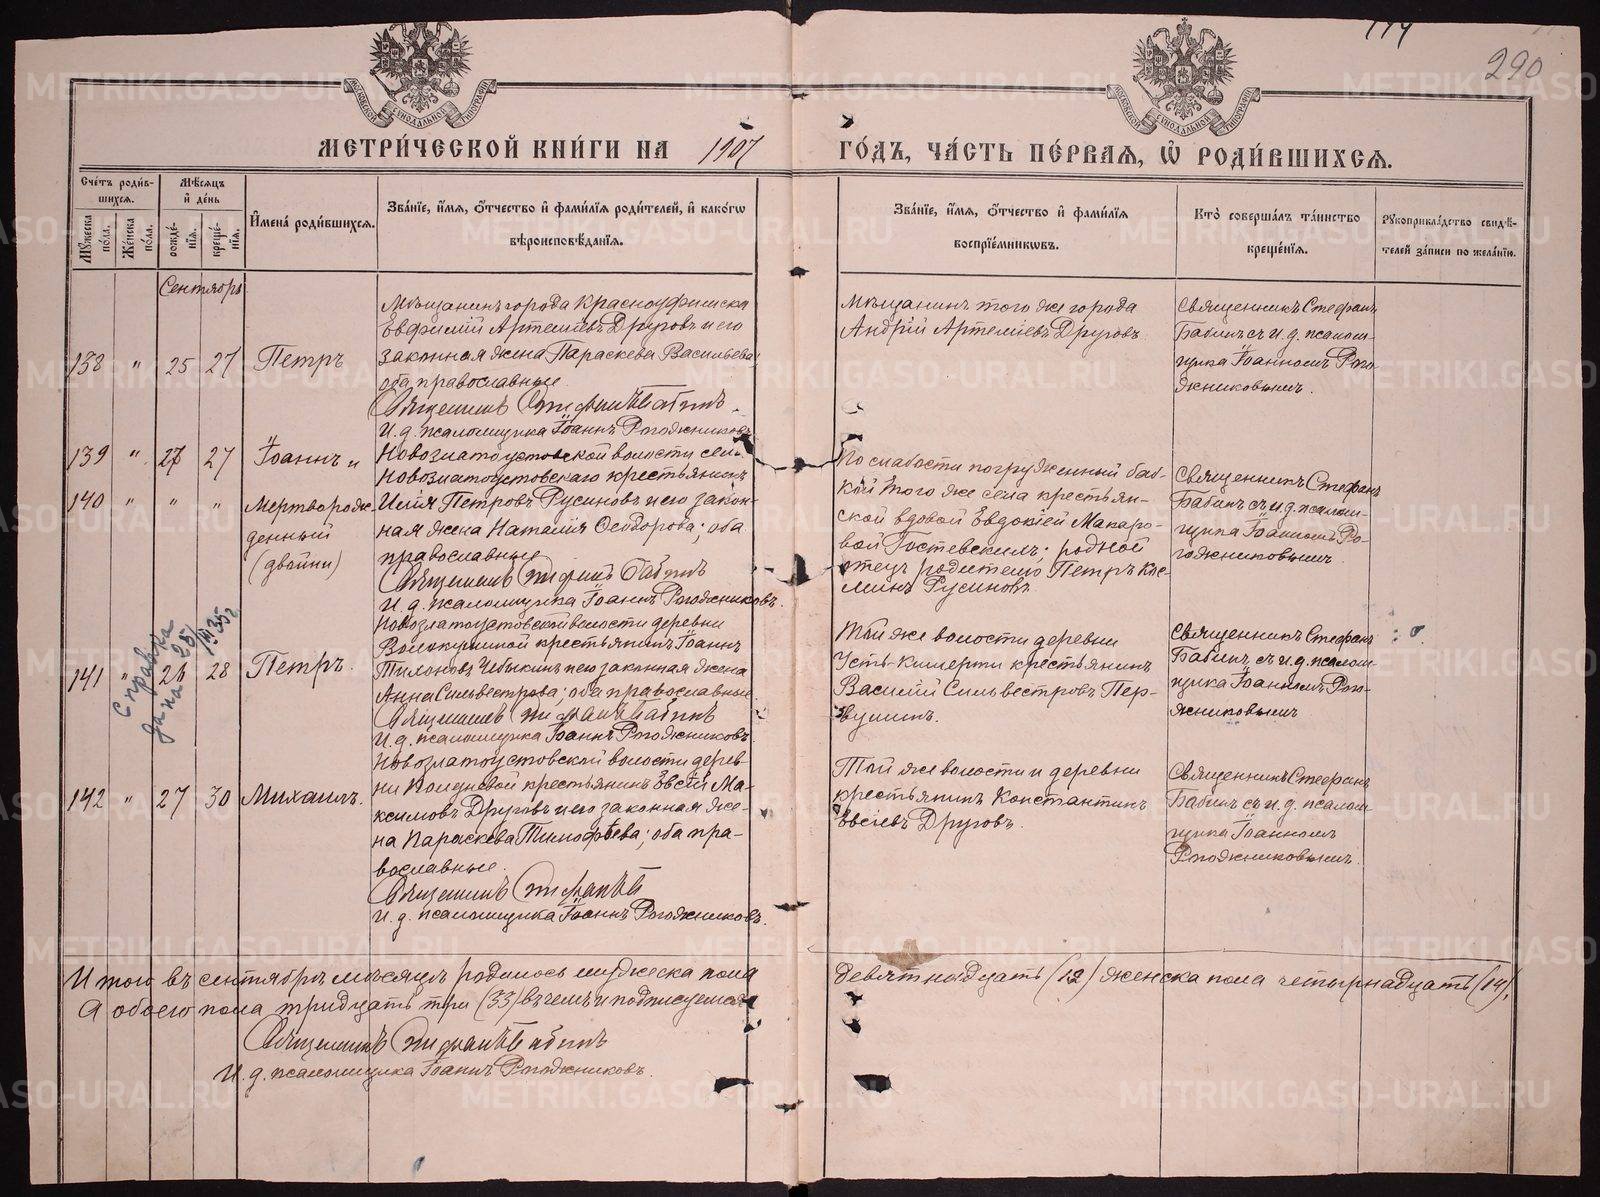 174
290
МЕТРИ́ЧЕСКОЙ КНИ́ГИ НА 1907 ГО́ДЪ, ЧА́СТЬ ПЕ́РВАѦ, Ѡ҆ РОДИ́ВШИХСѦ.
Сче́тъ роди́в-
шихсѧ.
Мѣ́сѧцъ
и҆ де́нь
Мꙋ́жеска по́ла.
Же́нска по́ла.
рожде́-
нїѧ.
креще́-
нїѧ.
И҆мена̀ роди́вшихсѧ.
Зва́нїе, и҆́мѧ, ѻ҆́тчество и҆ фами́лїѧ роди́телей, и҆ како́гѡ
вѣроисповѣ́данїѧ.
Зва́нїе, и҆́мѧ, ѻ҆́тчество и҆ фами́лїѧ
воспрїе́мникѡвъ.
Кто̀ соверша́лъ та́инство
креще́нїѧ.
Рꙋкоприкла́дство свидѣ́-
телей за́писи по жела́нїю.
Сентябрь
138 " 25 27 Петръ
Мѣщанинъ города Красноуфимска
Евфимій Артемьевъ Друговъ и его
законная жена Параскева Васильева
оба православные.
Священникъ Стефанъ Бабинъ.
И. д. псаломщика Іоаннъ Рогожниковъ
Мѣщанинъ того же города
Андрій Артеміевъ Друговъ.
Священникъ Стефанъ
Бабинъ съ и. д. псалом-
щика Іоанномъ Рого-
жниковымъ.
139 " 27 27 Іоаннъ и
140 " " " Мертворож-
денный
(двойни)
Новозлатоустовской волости села
Новозлатоустовскаго крестьянинъ
Илія Петровъ Русиновъ и его закон-
ная жена Наталія Ѳеодорова; оба
православные
Священникъ Стефанъ Бабинъ
И. д. псаломщика Іоаннъ Рогожниковъ.
По слабости погруженный баб-
кой того же села крестьян-
ской вдовой Евдокіей Макаро-
вой Гостевскихъ; родной
отецъ родителю Петръ Кос-
минъ Русиновъ.
Священникъ Стефанъ
Бабинъ съ и. д. псалом-
щика Іоанномъ Ро-
гожниковымъ.
Справка
дана 25/
35 г.
141 " 26 28 Петръ.
Новозлатоустовской волости деревни
крестьянинъ Іоаннъ
Чебыкинъ и его законная жена
Анна Сильвестрова; оба православные.
Священникъ Стефанъ Бабинъ
И. д. псаломщика Іоаннъ Рогожниковъ.
Той же волости деревни
Усть-Кишерти крестьянинъ
Василій Сильвестровъ Пер-
вушинъ.
Священникъ Стефанъ
Бабинъ съ и. д. псалом-
щика Іоанномъ Рого-
жниковымъ
142 " 27 30 Михаилъ.
Новозлатоустовской волости дерев-
ни крестьянинъ Евсѣй Ма-
ксимовъ Друговъ и его законная же-
на Параскева Тимофѣева; оба пра-
вославные.
Священникъ Стефанъ Б
И. д. псаломщика Іоаннъ Рогожниковъ.
Той же волости и деревни
крестьянинъ Константинъ
Евсіевъ Друговъ.
Священникъ Стефанъ
Бабинъ съ и. д. псалом-
щика Іоанномъ
Рогожниковымъ.
Итого въ сентябрѣ мѣсяцѣ родилось мужеска пола девятнадцать (19) женска пола четырнадцать (14),
А обоего пола тридцать три (33) въ чемъ и подписуемся
Священникъ Стефанъ Бабинъ
И. д. псаломщика Іоаннъ Рогожниковъ.
METRIKI.GASO-URAL.RU